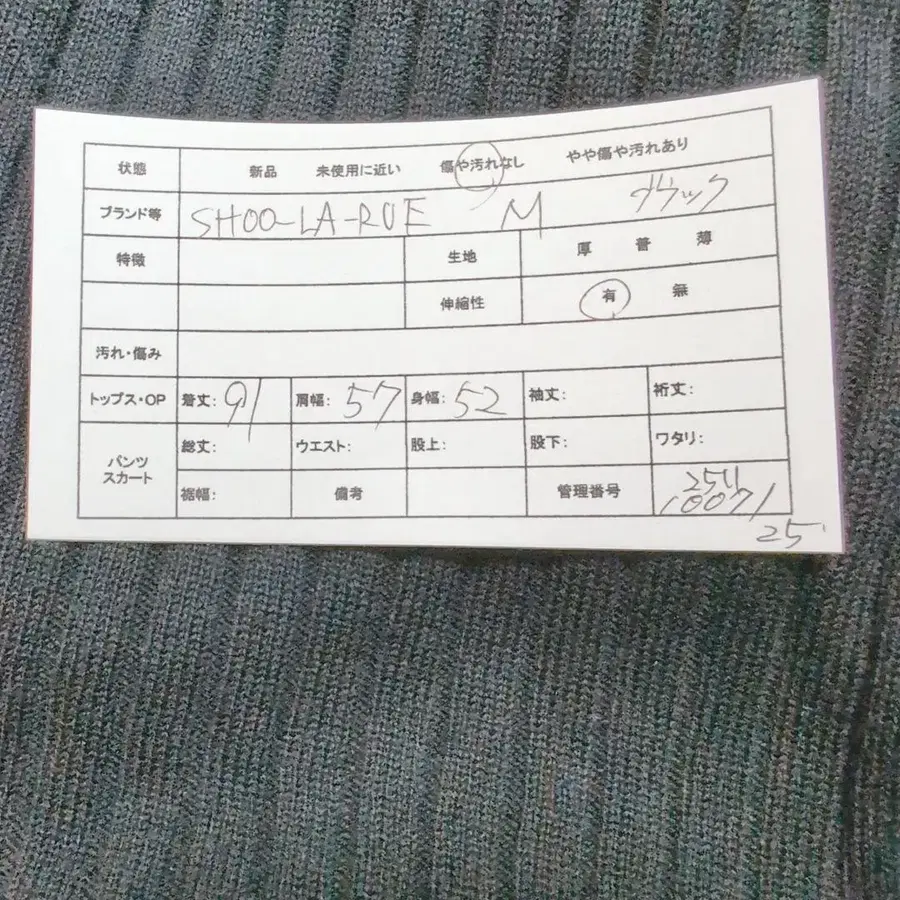 状態 新品 未使用に近い 傷や汚れなし やや傷や汚れあり
ブランド等 SHOO-LA-RUE M ブラック
特徴 生地 厚 普 薄
伸縮性 有 無
汚れ・傷み
トップス・OP 着丈: 91 肩幅: 57 身幅: 52 袖丈: 裄丈:
パンツ スカート 総丈: ウエスト: 股上: 股下: ワタリ:
裾幅: 備考 管理番号
10071
25